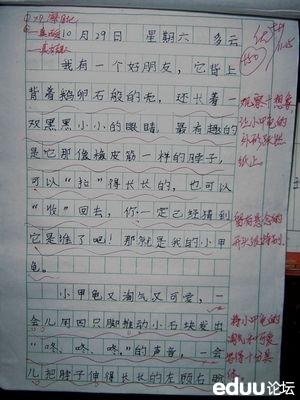 10月29日 星期六 多云
我有一个好朋友,它背上
背着鹅卵石般的壳,还长着一
双黑黑小小的眼睛,最有趣的
是它那像橡皮筋一样的脖子,
可以“拉”得长长的,也可以
“收”回去,你一定已经猜到
它是谁了吧!那就是我的小甲
龟。
小甲龟又淘气又可爱,一
会儿用四只脚推动小石块发出
“咚、咚、咚”的声音,一会
儿把脖子伸得长长的左顾右盼
观察+想象
让小甲龟的
外形跃然
纸上
留有悬念的
开头很特别
将小甲龟的
淘气和可爱
写得十分具
体
eduu论坛